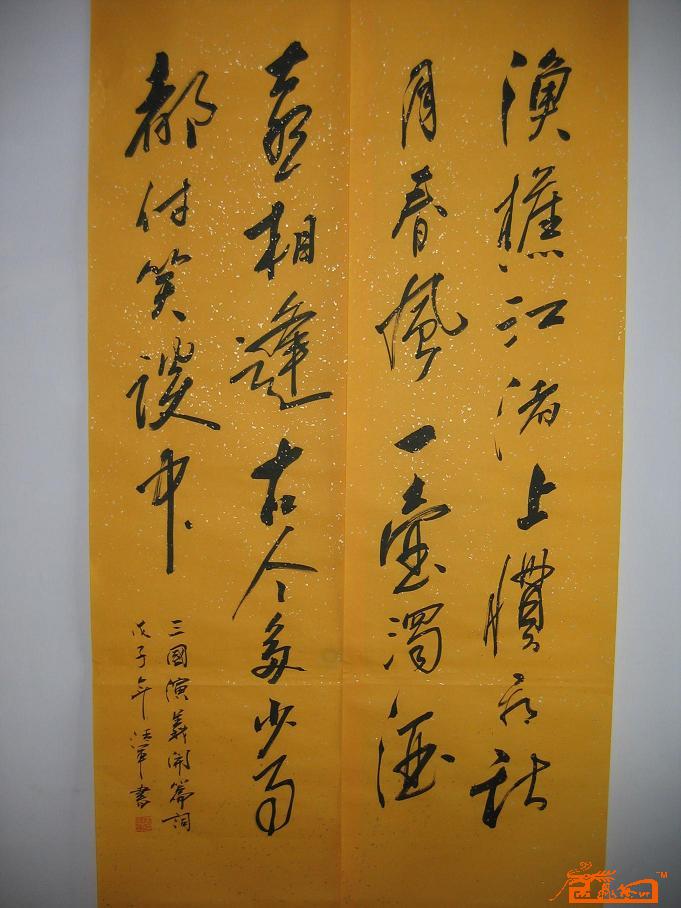 渔樵江渚上惯看秋
月春风一壶浊酒
喜相逢古今多少事
都付笑谈中
三國演義開篇詞
戊子年 書